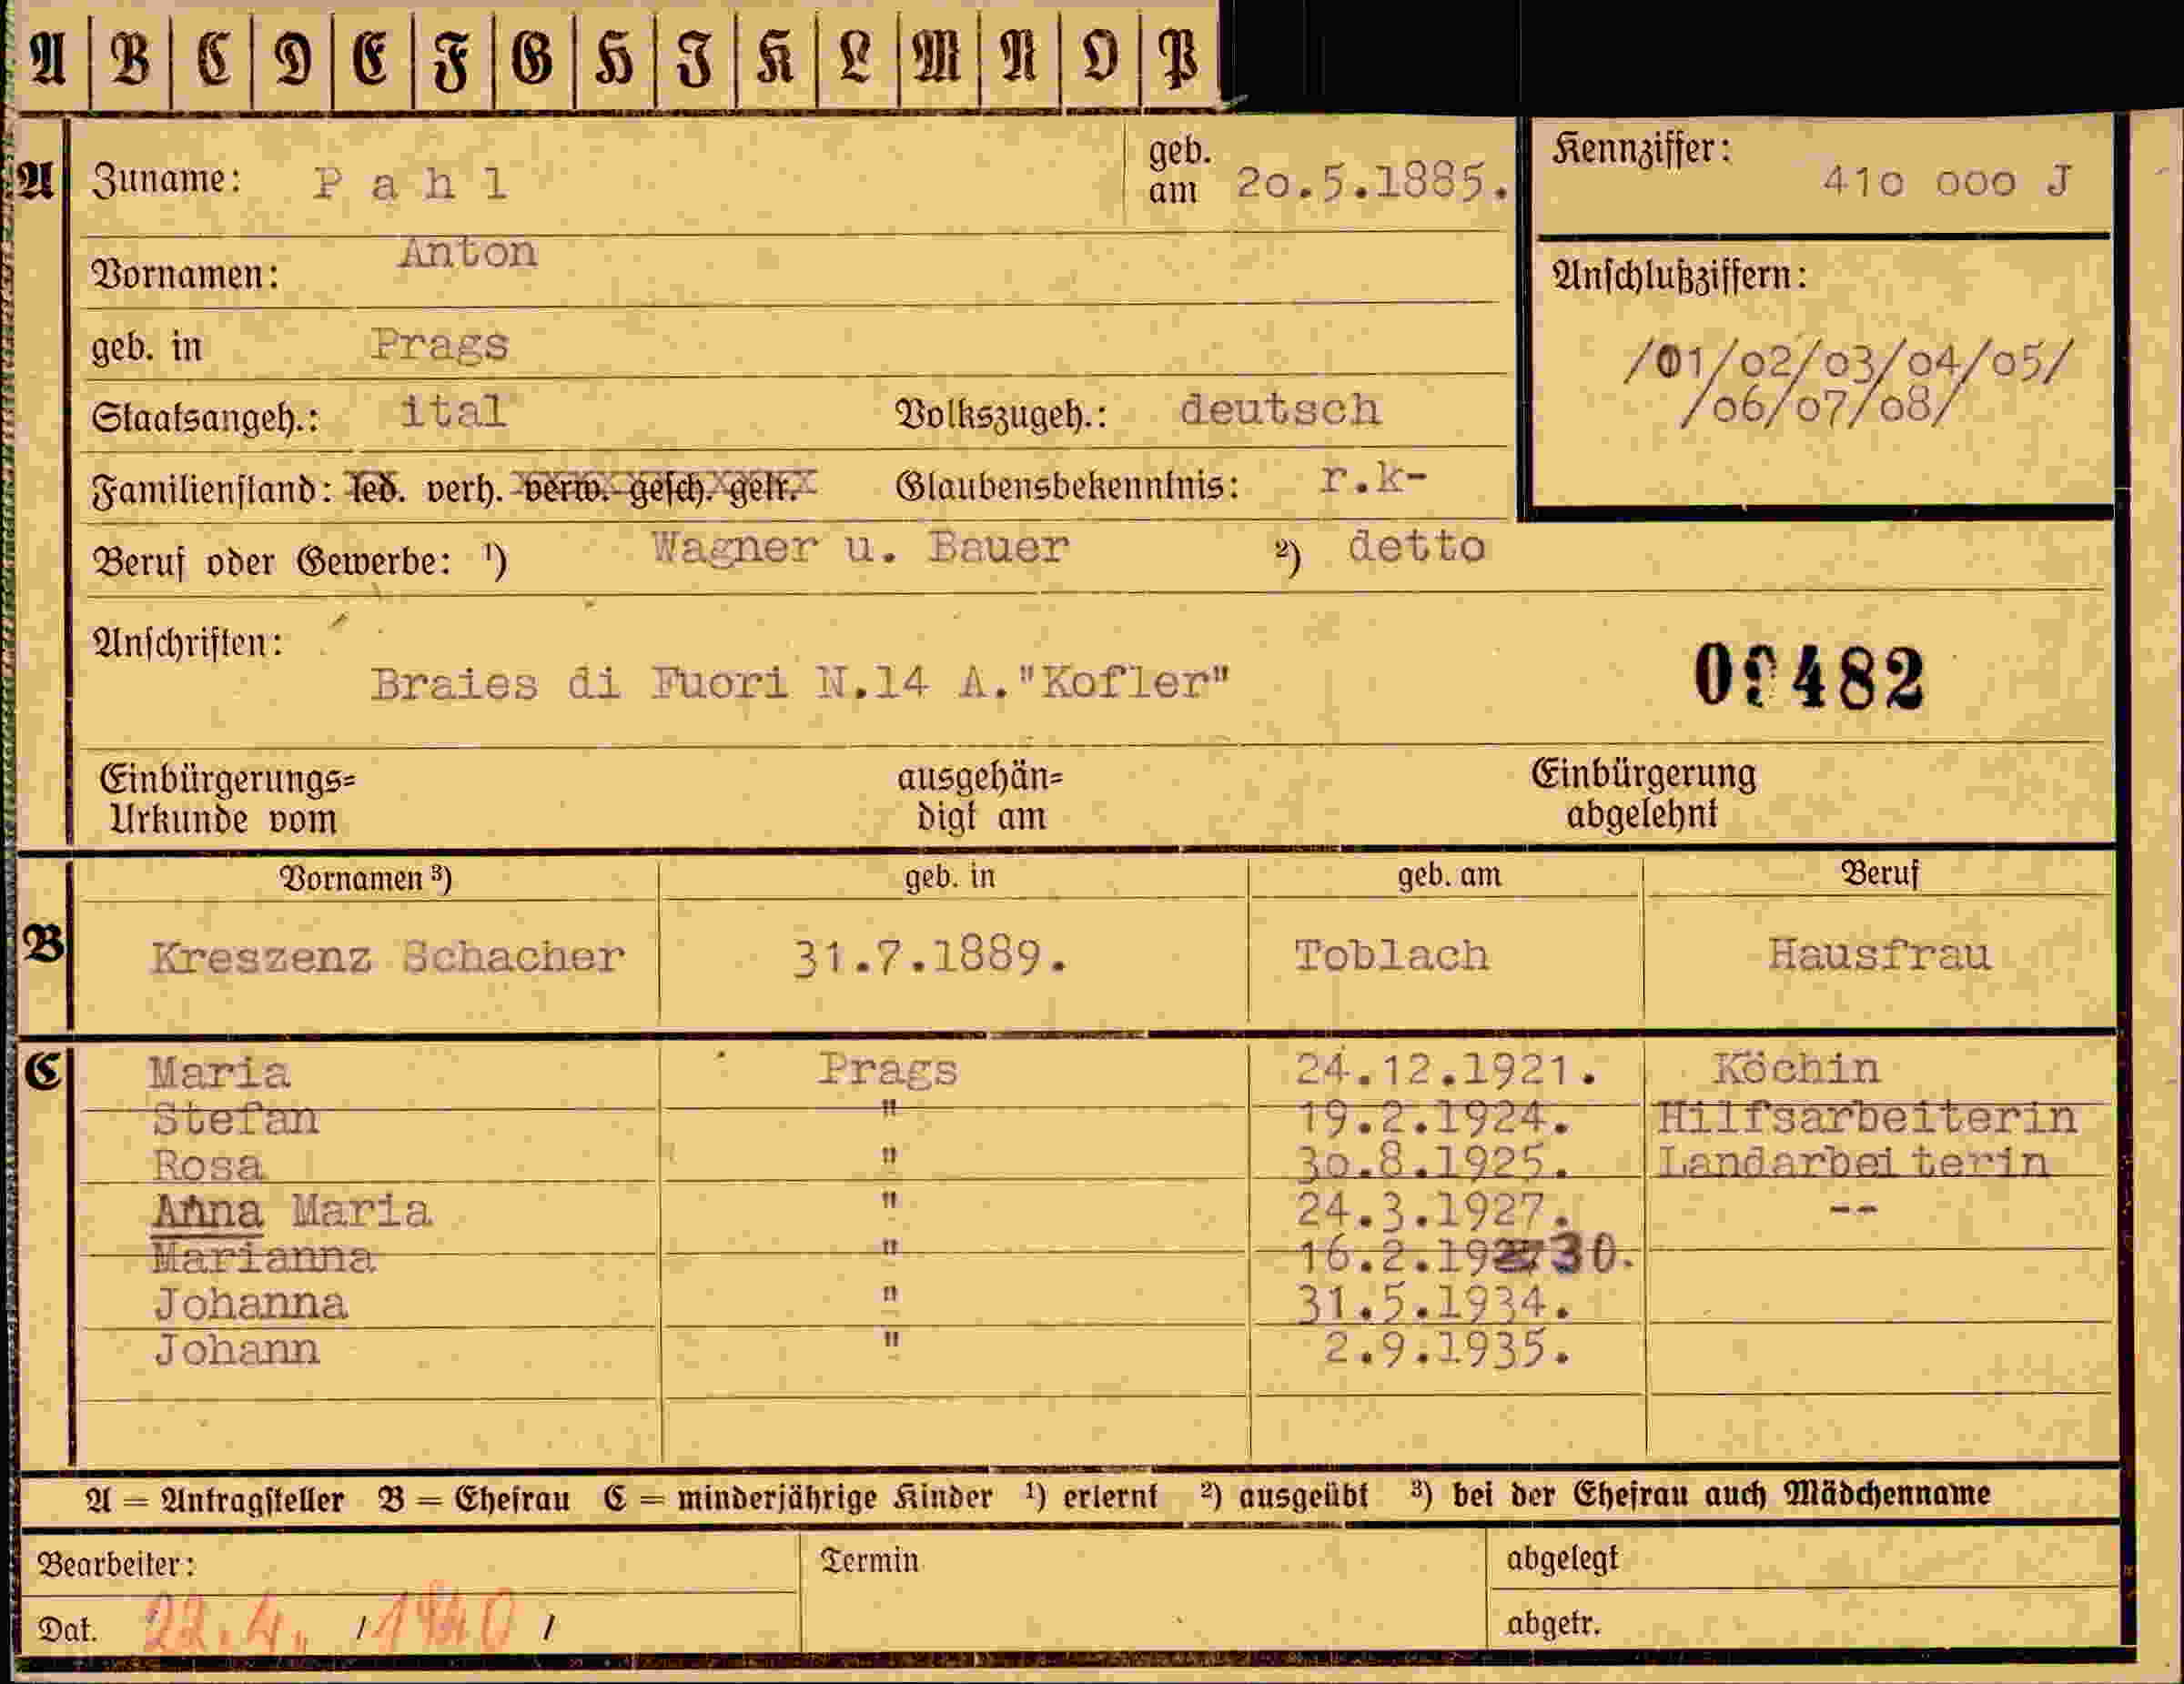 A B C D E F G H J K L M N O P
A Zuname: Pahl geb. am 20.5.1885. Kennziffer: 410 000 J
Vornamen: Anton
Anschlußziffern:
geb. in Prags
/01/02/03/04/05/
/06/07/08/
Staatsangeh.: ital Volkszugeh.: deutsch
Familienstand: led. verh. verw. gesch. getr. Glaubensbekenntnis: r.k-
Beruf oder Gewerbe: ¹) Wagner u. Bauer ²) detto
Anschriften:
Braies di Fuori N.14 A."Kofler"
482
Einbürgerungs= ausgehän= Einbürgerung
Urkunde vom digt am abgelehnt
Vornamen ³) geb. in geb. am Beruf
B Kreszenz Schacher 31.7.1889. Toblach Hausfrau
C Maria Prags 24.12.1921. Köchin
Stefan " 19.2.1924. Hilfsarbeiterin
Rosa " 30.8.1925. Landarbeiterin
Anna Maria " 24.3.1927. --
Marianna " 16.2.1930.
Johanna " 31.5.1934.
Johann " 2.9.1935.
A = Antragsteller B = Ehefrau C = minderjährige Kinder ¹) erlernt ²) ausgeübt ³) bei der Ehefrau auch Mädchenname
Bearbeiter: Termin abgelegt
Dat. 22.4. / 1940 / abgetr.